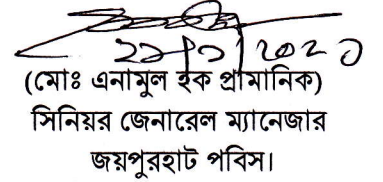 (মোঃ এনামুল হক প্রামানিক)
সিনিয়র জেনারেল ম্যানেজার
জয়পুরহাট পবিস।